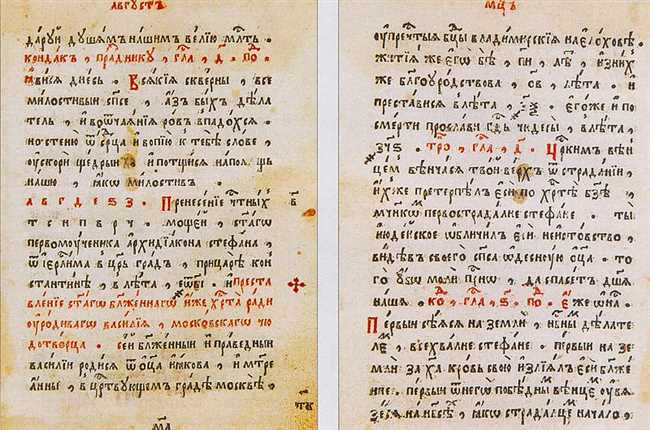 августъ
даруй душамъ нашимъ велію млть
кондакъ , празднику , гла , д , по
ѧвисѧ днесь , Всѧкіѧ скверны , все
милостивыи спсе , азъ быхъ дѣла
тель , и воѿчаѧніѧ ровъ впадохсѧ
но стеню ѿ срца и вопію к тебѣ слове ,
ускори щедрыи и потщисѧ на пом
нашю , ꙗко милостивъ .
а в г д е ѕ з . Пренесеніе чтныхъ
т с и п в р ч . мощеи , стагѡ
первомоученика архидіакона стефана ,
ѿ іерлима в црь градъ , при царѣ кон
стантинѣ , в лѣта , и преста
вленіе стагѡ блаженнагѡ иже хрта ради
оуродивагѡ василіѧ , московскагѡ чю
дотворца . сеи блженныи и праведныи
василіи родисѧ ѿ оца ꙗкова , и мтре
анны , в цртвующемъ градѣ москвѣ ,
мцъ
оу пречтыѧ бцы владимерскіѧ на елоховѣ
житіѧ же егѡ бѣ , и лѣ , из них
же благоуродствова , ов , лѣта . и
престависѧ в лѣта , егоже и по
смерти прослави гдь чюдесы , в лѣта ,
зчѕ . тро , гла , д , Црким вѣн
цем вѣнчасѧ твои верхъ ѿ страдании ,
их же претерпѣлъ еси по хртѣ бзѣ ,
мчнкѡм первострадалне стефане . ты
июдеиское ѡбличил еси неистовство ,
видѣвъ своего спса ѡдесную оца . то
го оубѡ моли прнѡ , да спасетъ дшѧ
нашѧ . ко , гла , ѕ , по , Еже ѡ на
Первыи сеѧсѧ на земли , нбны дѣлате
ле , всехвалне стефане . первыи на зе
мли за ха кровь свою изліѧлъ еси блже
не . первыи ѿ него побѣдны вѣнце оувѧ
зесѧ на нбсѣ , ꙗко страдалцемъ начало ,